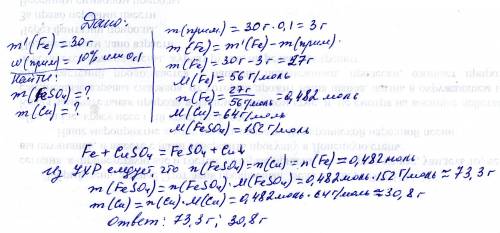 Дано:
m'(Fe) = 30г
w(прим) = 10% или 0,1
Найти:
m(FeSO₄) = ?
m(Cu) = ?
m(прим) = 30г · 0,1 = 3г
m(Fe) = m'(Fe) - m(прим)
m(Fe) = 30г - 3г = 27г
M(Fe) = 56 г/моль
n(Fe) = 27г / 56г/моль = 0,482 моль
M(Cu) = 64 г/моль
M(FeSO₄) = 152 г/моль
Fe + CuSO₄ = FeSO₄ + Cu↓
Из УХР следует, что n(FeSO₄) = n(Cu) = n(Fe) = 0,482 моль
m(FeSO₄) = n(FeSO₄) · M(FeSO₄) = 0,482 моль · 152 г/моль ≈ 73,3 г
m(Cu) = n(Cu) · M(Cu) = 0,482 моль · 64 г/моль ≈ 30,8 г
Ответ: 73,3 г; 30,8 г